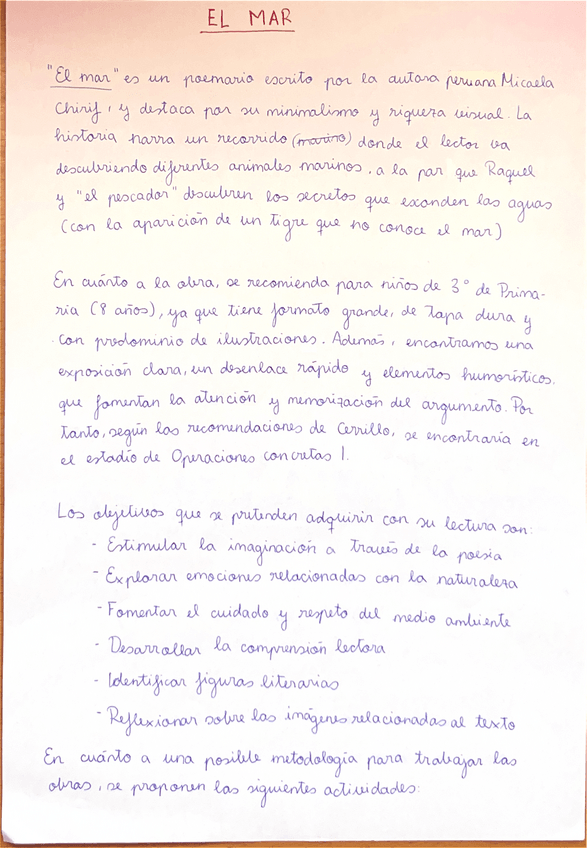 EL MAR
"El mar" es un poemario escrito por la autora peruana Micaela
Chirif, y destaca por su minimalismo y riqueza visual. La
historia narra un recorrido (marino) donde el lector va
descubriendo diferentes animales marinos, a la par que Raquel
y "el pescador" descubren los secretos que exonden las aguas
(con la aparición de un tigre que no conoce el mar)
En cuánto a la obra, se recomienda para niños de 3º de Prima-
ria (8 años), ya que tiene formato grande, de tapa dura y
con predominio de ilustraciones. Además, encontramos una
exposición clara, un desenlace rápido y elementos humorísticos.
que fomentan la atención y memorización del argumento. Por
tanto, según las recomendaciones de Cerrillo, se encontraría en
el estadio de Operaciones concretas I.
Los objetivos que se pretenden adquirir con su lectura son:
- Estimular la imaginación a través de la poesía
- Explorar emociones relacionadas con la naturaleza
- Fomentar el cuidado y respeto del medio ambiente
- Desarrollar la comprensión lectora
- Identificar figuras literarias
- Reflexionar sobre las imágenes relacionadas al texto
En cuánto a una posible metodología para trabajar las
obras, se proponen las siguientes actividades: